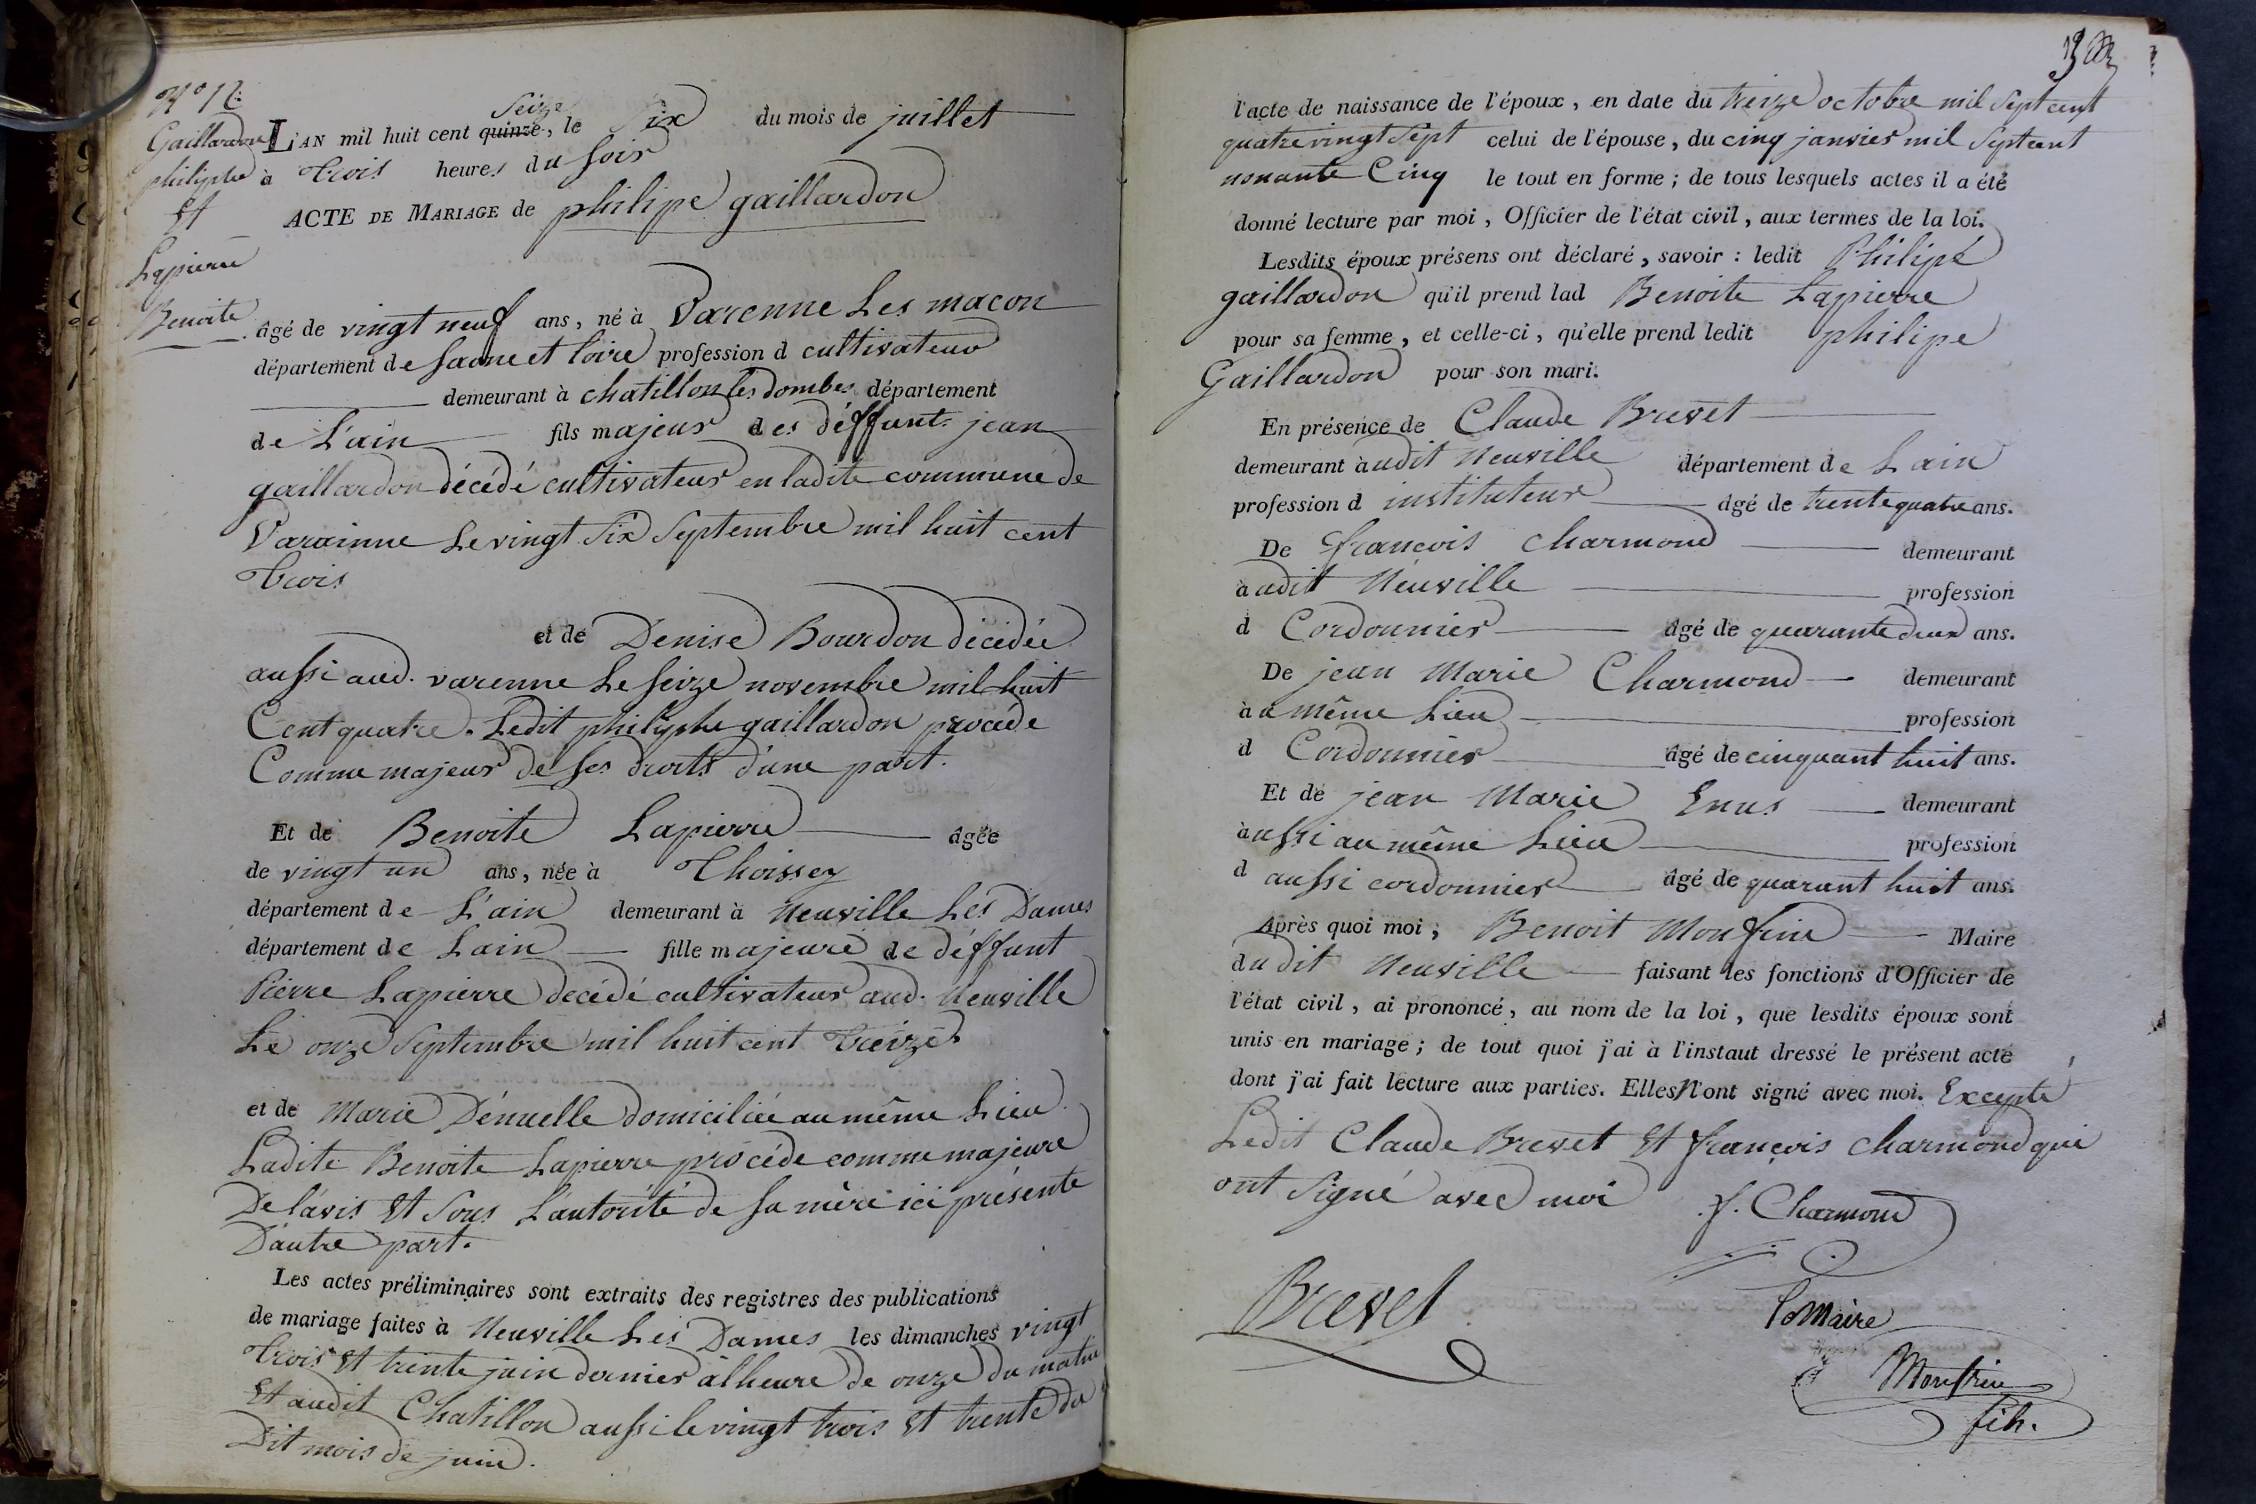 N° 12.
Gaillardon
philiphe
Et
Lapierre
Benoite
Seize
L'AN mil huit cent quinze, le six du mois de juillet
à trois heures du soir
ACTE DE MARIAGE de philipe gaillardon
âgé de vingt neuf ans, né à Varenne Les macon
département de saone et loire profession d cultivateur
demeurant à chatillon les dombes département
de L'ain fils majeur des déffunt jean
gaillardon décédé cultivateur en ladite commune de
Varainne Le vingt Six Septembre mil huit cent
trois
et de Denise Bourdon décédée
aussi aud. varenne Le Seize novembre mil huit
Cent quatre. Ledit philiphe gaillardon procéde
Comme majeur de Ses droits d'une part.
Et de Benoite Lapierre âgée
de vingt un ans, née à Thoissey
département de L'ain demeurant à Neuville Les Dames
département de Lain fille majeure de déffunt
Pierre Lapierre decédé cultivateur aud. Neuville
Le onze Septembre mil huit cent treize
et de Marie Dénuelle domiciliée au même Lieu
Ladite Benoite Lapierre procéde comme majeure
De l'avis Et Sous L'autorité de Sa mère ici présente
D'autre part.
Les actes préliminaires sont extraits des registres des publications
de mariage faites à Neuville Les Dames les dimanches vingt
trois Et trente juin dernier à lheure de onze du matin
Et audit Chatillon aussi le vingt trois Et trente du
Dit mois de juin.
l'acte de naissance de l'époux, en date du treize octobre mil Sept cent
quatre vingt Sept celui de l'épouse, du cinq janvier mil Sept cent
nonante Cinq le tout en forme; de tous lesquels actes il a été
donné lecture par moi, Officier de l'état civil, aux termes de la loi.
Lesdits époux présens ont déclaré, savoir: ledit Philipe
gaillardon qu'il prend lad Benoite Lapierre
pour sa femme, et celle-ci, qu'elle prend ledit philipe
Gaillardon pour son mari.
En présence de Claude Brevet
demeurant audit Neuville département de Lain
profession d instituteur âgé de trente quatre ans.
De françois Charmond demeurant
à udit Neuville profession
d Cordonnier âgé de quarante deux ans.
De jean Marie Charmond demeurant
à u même Lieu profession
d Cordonnier âgé de cinquant huit ans.
Et de jean Marie Enus demeurant
àussi au même Lieu profession
d aussi cordonnier âgé de quarant huit ans.
Après quoi moi, Benoit Monfrin Maire
du dit Neuville faisant les fonctions d'Officier de
l'état civil, ai prononcé, au nom de la loi, que lesdits époux sont
unis en mariage; de tout quoi j'ai à l'instaut dressé le présent acte
dont j'ai fait lecture aux parties. Elles n'ont signé avec moi. Excepté
Ledit Claude Brevet Et françois Charmond qui
ont Signé avec moi
f. Charmond
Brevet
le Maire
Monfrin
fih.